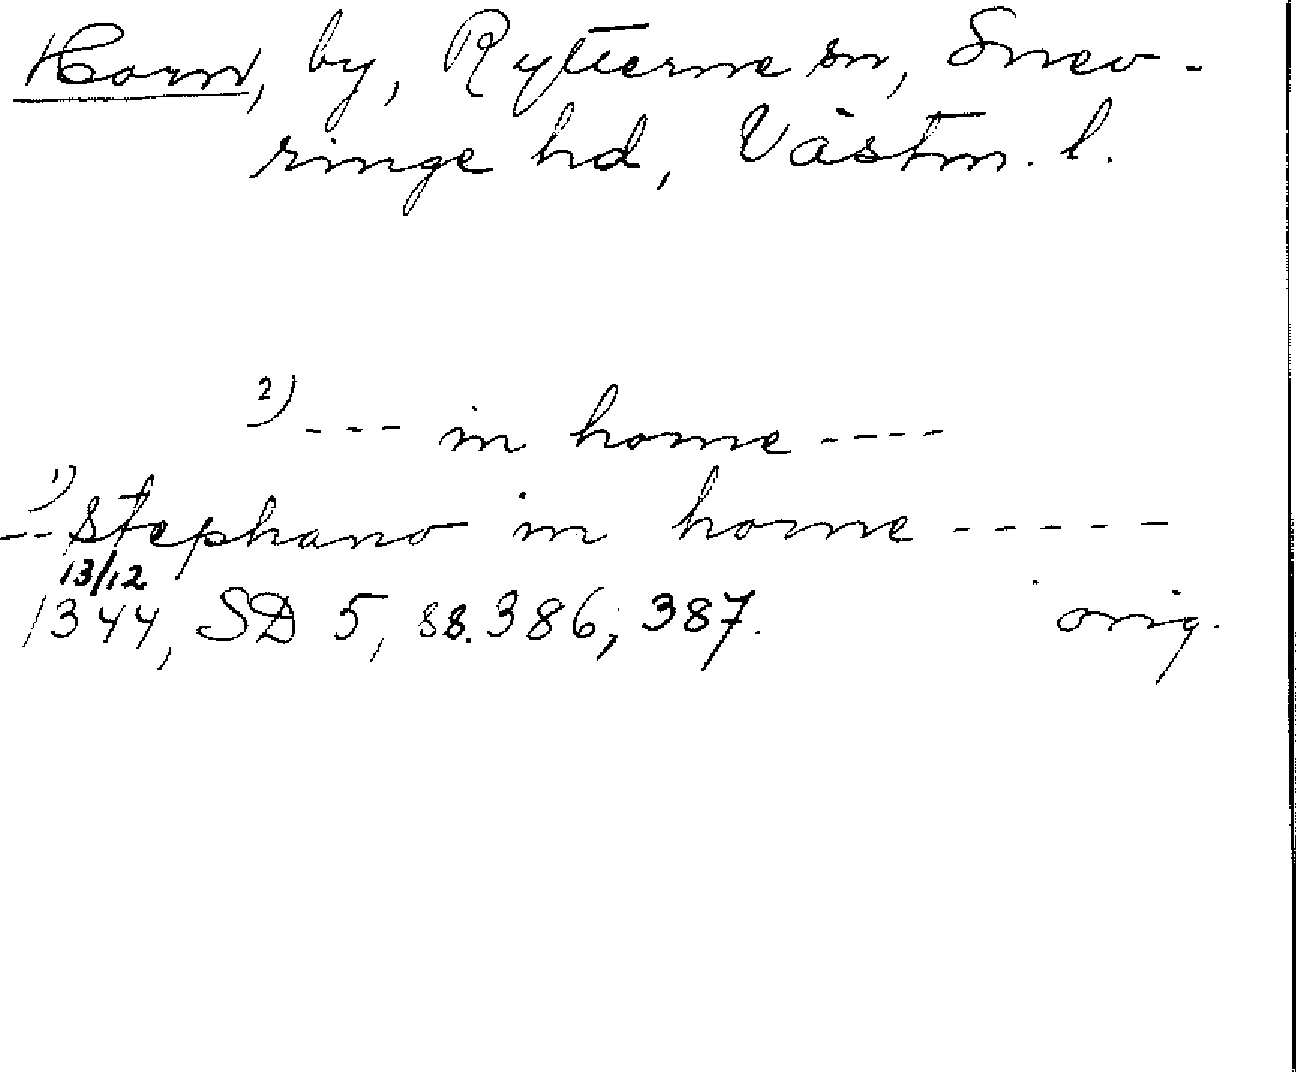 Horn, by, Rytterne sn, Snev-
ringe hd, Västm. l.
2) --- in horne ----
1)
-- Stephano in horne -----
13/12
1344, SD 5, ss. 386, 387. orig.